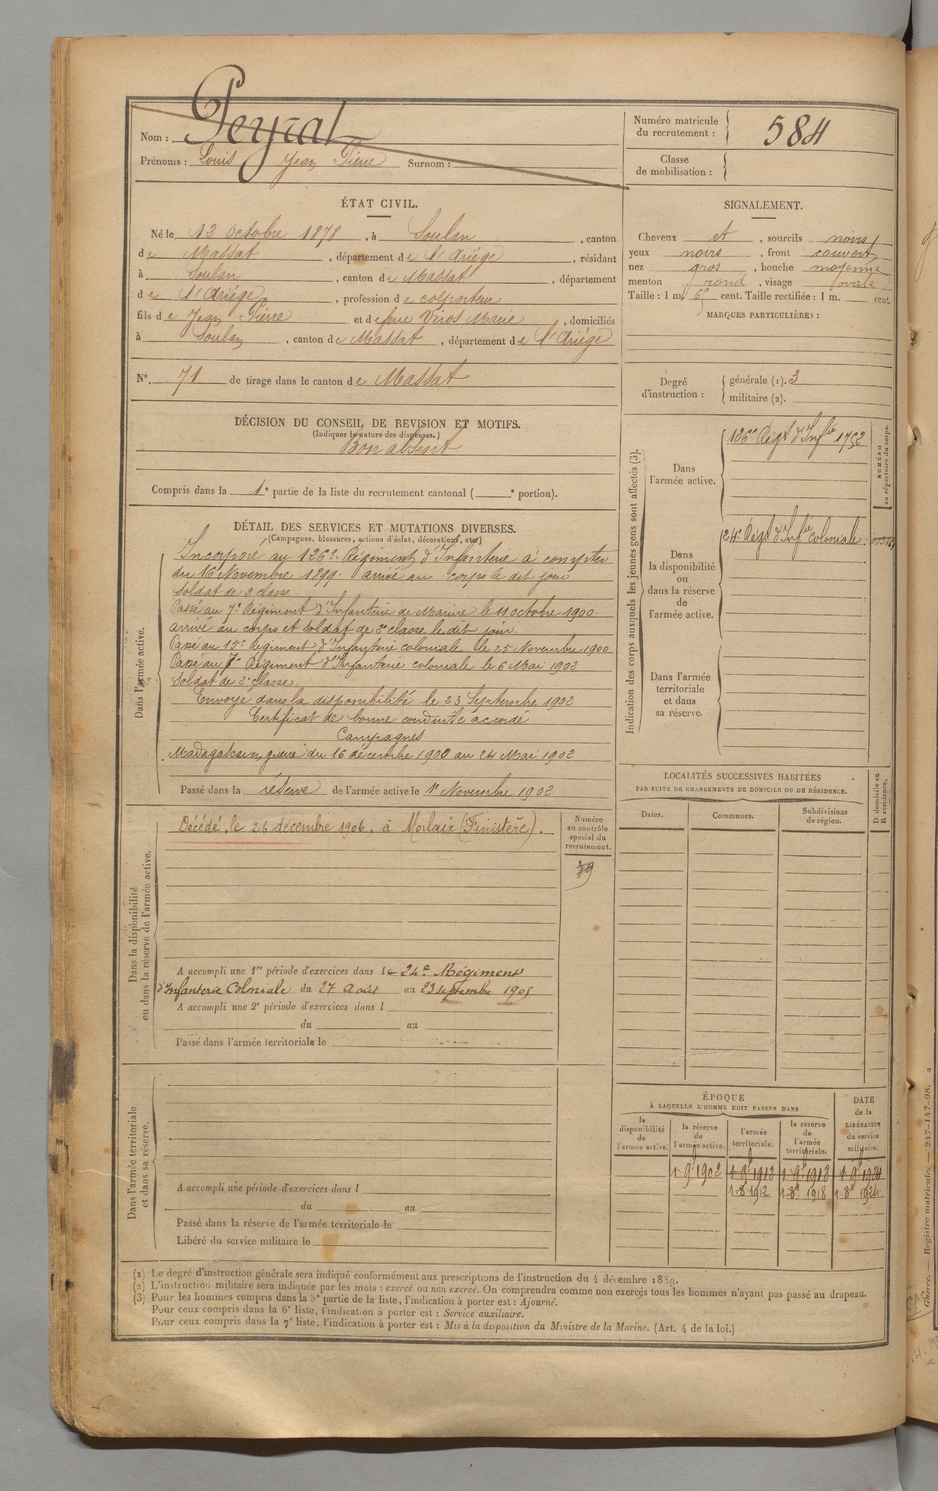 Nom : Peyrat
Prénoms : Louis Jean Pierre Surnom :
Numéro matricule du recrutement : 584
Classe de mobilisation :
ÉTAT CIVIL.
Né le 13 Octobre 1878, à Soulan, canton
de Massat, département de l'Ariège, résidant
à Soulan, canton de Massat, département
de l'Ariège, profession de colporteur
fils de Jean Pierre et de feue Viros Marie, domiciliés
à Soulan, canton de Massat, département de l'Ariège
N° 71 de tirage dans le canton de Massat
SIGNALEMENT.
Cheveux et, sourcils noirs
yeux noirs, front couvert
nez gros, bouche moyenne
menton rond, visage ovale
Taille : 1 m. 65 cent. Taille rectifiée : 1 m. cent.
MARQUES PARTICULIÈRES :
Degré d'instruction : générale (1). 3
militaire (2).
DÉCISION DU CONSEIL DE REVISION ET MOTIFS.
(Indiquer la nature des dispenses.)
Bon absent
Compris dans la 1e partie de la liste du recrutement cantonal ( e portion).
DÉTAIL DES SERVICES ET MUTATIONS DIVERSES.
(Campagnes, blessures, actions d'éclat, décorations, etc.)
Dans l'armée active.
Incorporé au 126e Régiment d'Infanterie à compter
du 16 Novembre 1899. arrivé au corps le dit jour
Soldat de 2 classe.
Passé au 7e Régiment d'Infanterie de Marine le 11 octobre 1900
arrivé au corps et soldat de 2e classe le dit jour.
Passé au 15e Régiment d'Infanterie coloniale le 25 Novembre 1900
Passé au 7e Régiment d'Infanterie coloniale le 6 Mai 1902
Soldat de 2e classe.
Envoyé dans la disponibilité le 23 Septembre 1902
Certificat de bonne conduite accordé
Campagnes
Madagascar, guerre du 16 décembre 1900 au 24 Mai 1902
Passé dans la réserve de l'armée active le 1er Novembre 1902
Indication des corps auxquels les jeunes gens sont affectés (3).
Dans l'armée active.
126e Régt d'Infie 1752
NUMÉRO au répertoire du corps.
Dans la disponibilité ou dans la réserve de l'armée active.
24e Régt d'Infie coloniale
Dans l'armée territoriale et dans sa réserve.
Dans la disponibilité ou dans la réserve de l'armée active.
Décédé, le 26 décembre 1906, à Morlaix (Finistère).
Numéro au contrôle spécial du recrutement.
79
A accompli une 1re période d'exercices dans le 24e Régiment
d'Infanterie Coloniale du 27 Août au 23 septembre 1905
A accompli une 2e période d'exercices dans l
du au
Passé dans l'armée territoriale le
LOCALITÉS SUCCESSIVES HABITÉES
PAR SUITE DE CHANGEMENTS DE DOMICILE OU DE RÉSIDENCE.
Dates. Communes. Subdivisions de région. D domicile ou R résidence.
Dans l'armée territoriale et dans sa réserve.
A accompli une période d'exercices dans l
du au
Passé dans la réserve de l'armée territoriale le
Libéré du service militaire le
ÉPOQUE
À LAQUELLE L'HOMME DOIT PASSER DANS
la disponibilité de l'armée active. la réserve de l'armée active. l'armée territoriale. la réserve de l'armée territoriale. DATE de la LIBÉRATION du service militaire.
1-9e 1902 1-9e 1912 1-9e 1918 1-9e 1924
1-8e 1912 1-8e 1918 1-8e 1924
(1) Le degré d'instruction générale sera indiqué conformément aux prescriptions de l'instruction du 4 décembre 1889.
(2) L'instruction militaire sera indiquée par les mots : exercé ou non exercé. On comprendra comme non exercés tous les hommes n'ayant pas passé au drapeau.
(3) Pour les hommes compris dans la 5e partie de la liste, l'indication à porter est : Ajourné.
Pour ceux compris dans la 6e liste, l'indication à porter est : Service auxiliaire.
Pour ceux compris dans la 7e liste, l'indication à porter est : Mis à la disposition du Ministre de la Marine. (Art. 4 de la loi.)
Guerre. — Registre matricule. — 247-147-98.